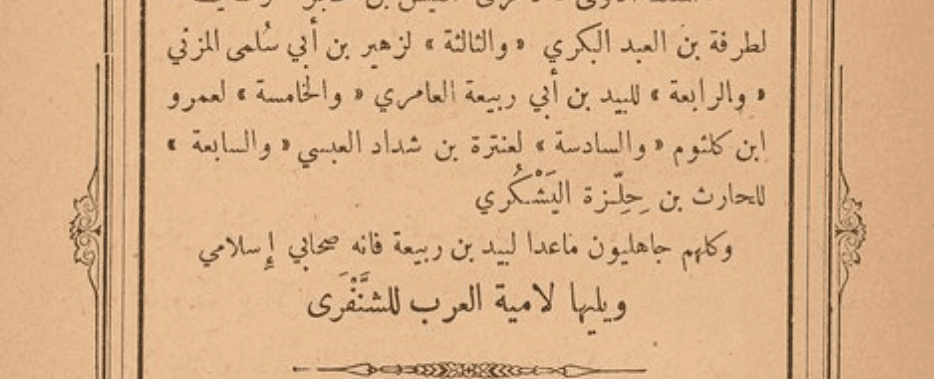 لطرفة بن العبد البكري « والثالثة » لزهير بن أبي سُلمى المزني
« والرابعة » للبيد بن أبي ربيعة العامري « والخامسة » لعمرو
ابن كلثوم « والسادسة » لعنترة بن شداد العبسي « والسابعة »
للحارث بن حِلِّزة اليَشْكُري
وكلهم جاهليون ماعدا لبيد بن ربيعة فانه صحابي إسلامي
ويليها لامية العرب للشنَّفْرَى